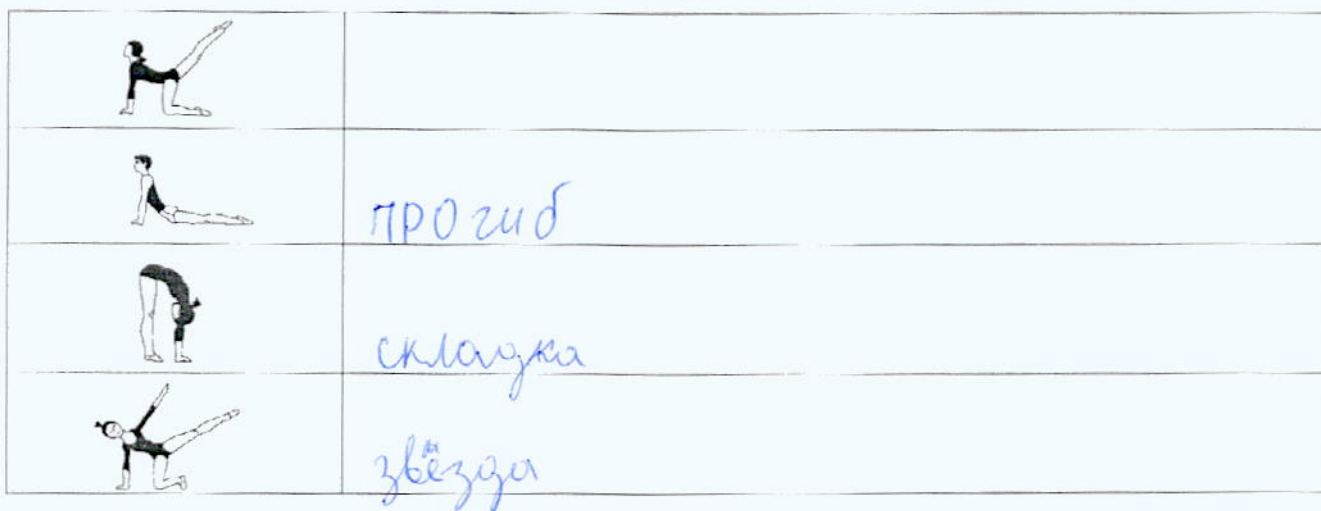 прогиб
складка
звёзда